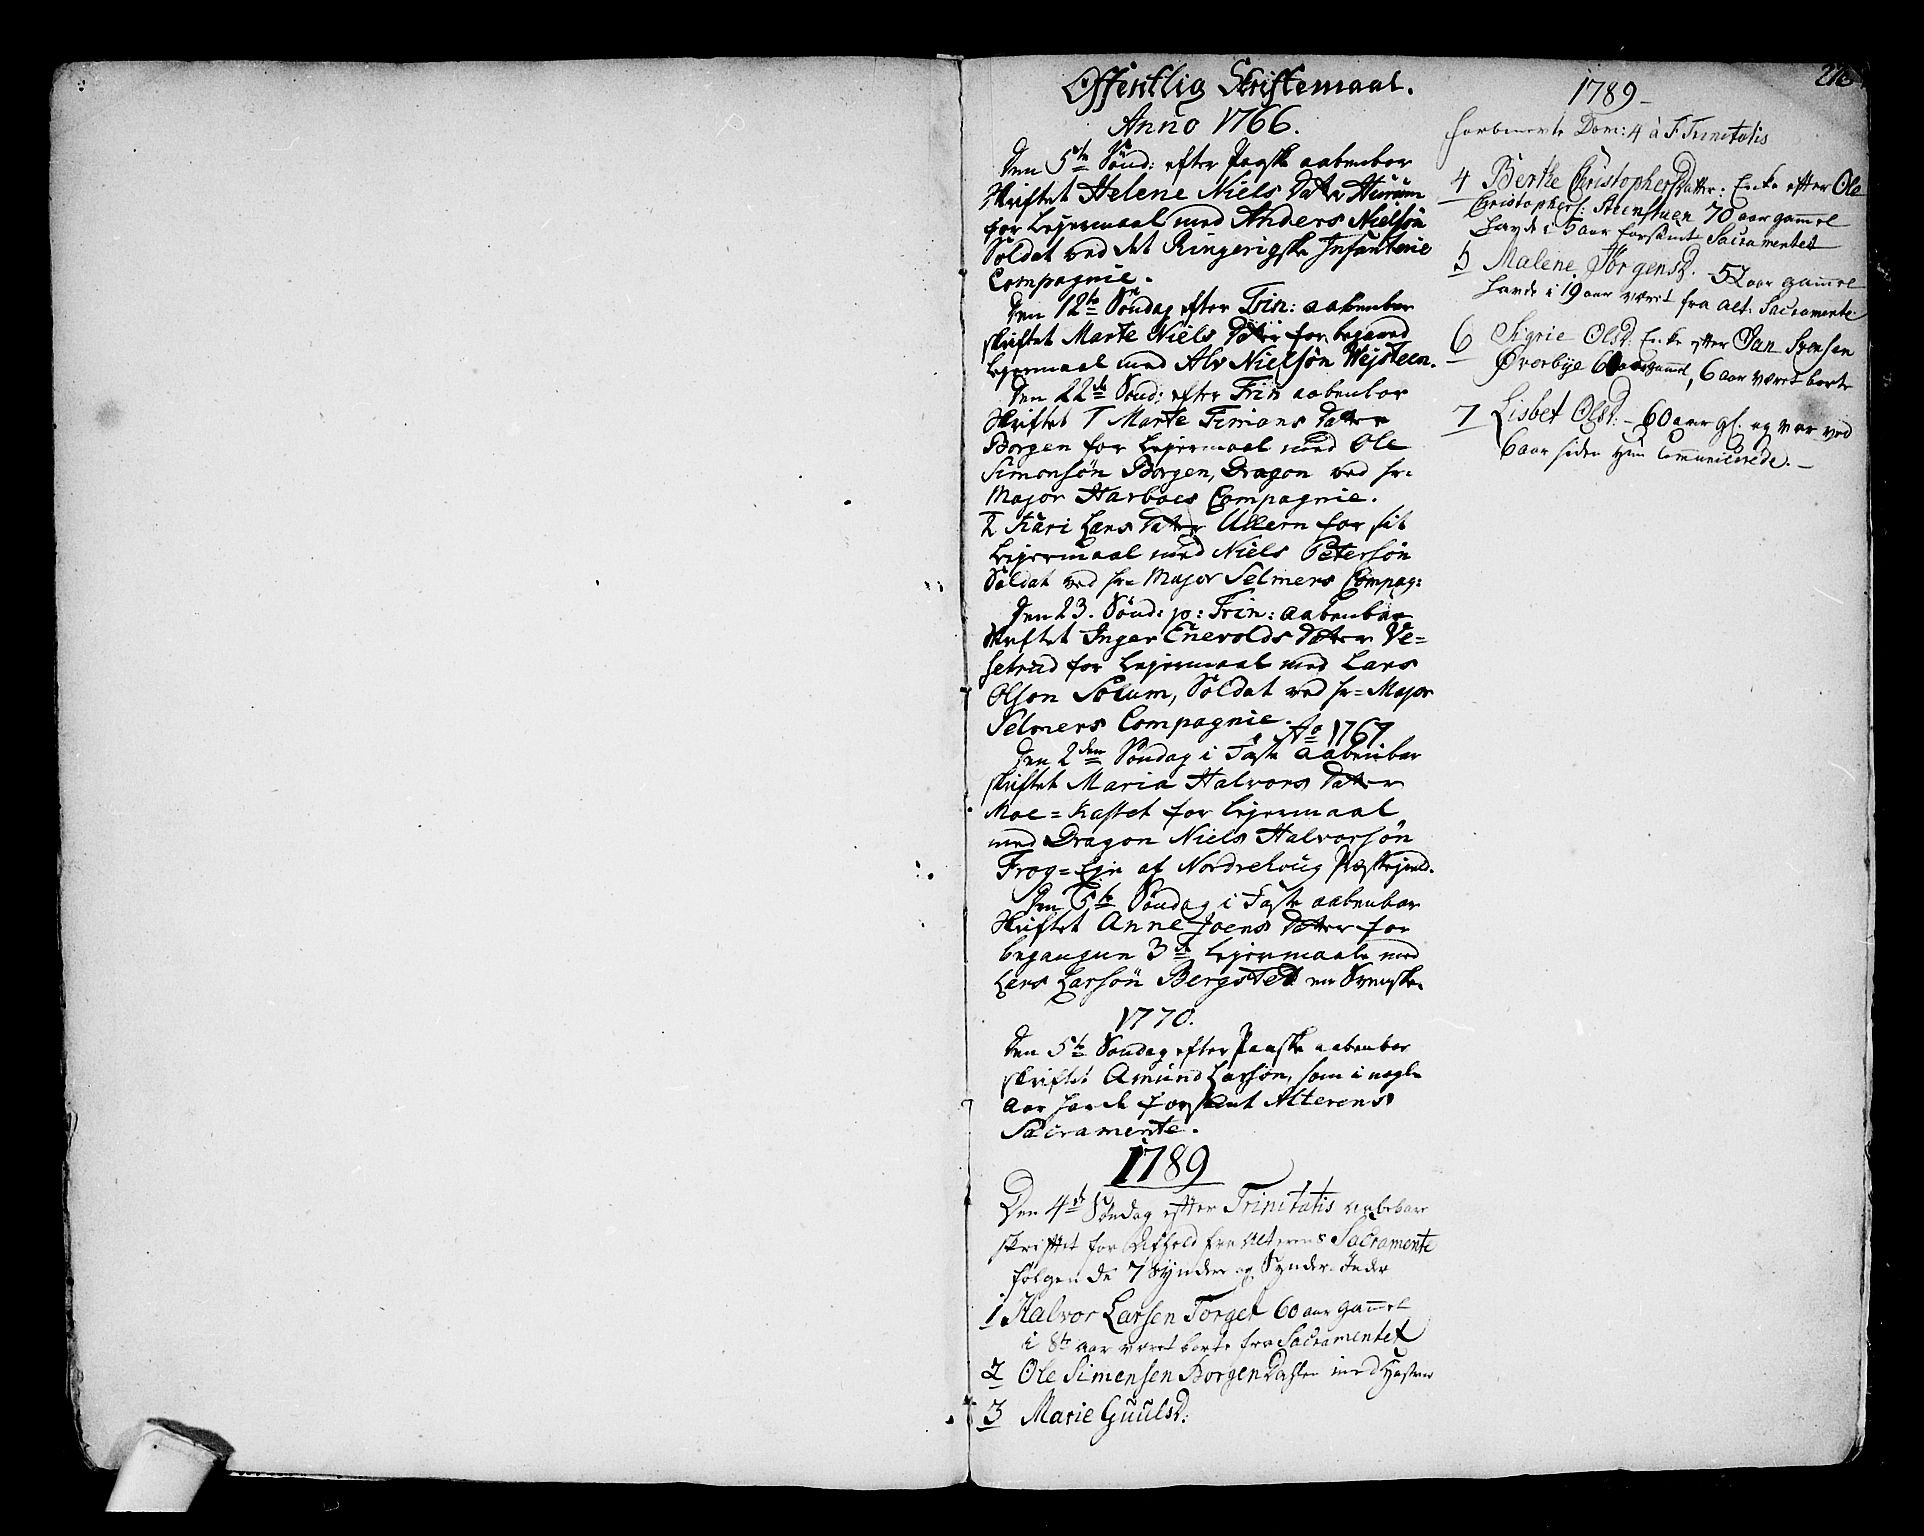 Offentlig Skriftemaal.
Anno 1766.
Den 5te Sönd: efter Paaske aabenbar
skriftet Helene Niels Datter
for Lejermaal med Anders Nielsön
Soldat ved det Ringerigske Infanterie
Compagnie.
Den 12te Söndag efter Trin: aabenbar
skriftet Marte Niels Datter for begaaed
Lejermaal med Alv Nielsön Wejsteen.
Den 22de Sönd: efter Trin aabenbar
skriftet 1 Marte Timans Datter
Borgen for Lejermaal med Ole
Simonsön Borgen, Dragon ved hr=
Major Harboes Compagnie.
2 Kari Lars Datter Ullern for sit
Lejermaal med Niels Petersön
Soldat ved hr= Major Selmers Compag:
Den 23. Sönd: p: Trin: aabenbar
skriftet Inger Enevolds Datter Ve=
setrud for Lejermaal med Lars
Olson Solum, Soldat ved hr= Major
Selmers Compagnie.
Ao 1767
Den 2den Söndag i Faste aabenbar
skriftet Maria Halvors Datter
Moe=Kastet for Lejermaal
med Dragon Niels Halvorsön
Frog=Eje af Nordrehoug Præstegield.
Den 5te Söndag i Faste aabenbar
skriftet Anne Joens Datter for
begangen 3de Lejermaale med
Lars Larsön Bergsted en Svenske.
1770.
Den 5te Sondag efter Paaske aabenbar
skriftet Amund Larsön, som i nogle
aar havde forsömt Alterens
Sacramente.
1789
Den 4de Söndag efter Trinitatis aabebare
skriftet for Afhold fra Alterens Sacramente
fölgende 7 Syndere og Synderinder
1 Halvor Larsen Torget 60 aar gammel
i 8te aar været borte fra Sacramentet
2 Ole Simensen Borgen Dahlen med Hustrue
3 Marie Guulsd:
276
1789
Dom: 4 à F. Trinitatis
4 Berthe Christophersdatter. Enke efter Ole
Christophers: Steenstuen 70 aar gamel
havde i 5 aar forsömt Sacramentet
5 Malene Jörgensd. 52 aar gamel
havde i 19 aar været fra Alt: Sacramente
6 Sigrie Olsd. Enke efter Jan Svensen
Överbye 60 aar gammel, 6 aar været borte
7 Lisbet Olsd: - 60 aar gl. og var ved
6 aar siden hun Communicerede. -